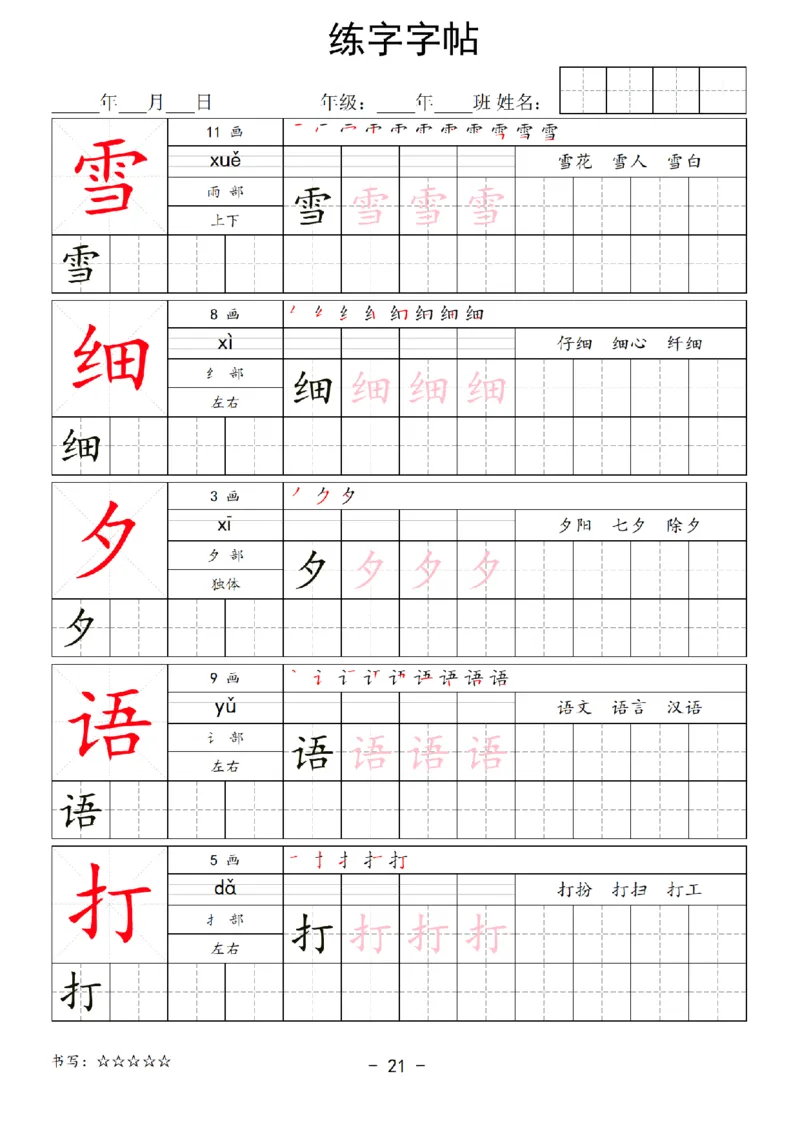 练字字帖
____年___月___日 年级：____年____班 姓名：
雪 11 画
xuě 雪花 雪人 雪白
雨 部 雪 雪 雪 雪
上下
雪
细 8 画
xì 仔细 细心 纤细
纟 部 细 细 细 细
左右
细
夕 3 画
xī 夕阳 七夕 除夕
夕 部 夕 夕 夕 夕
独体
夕
语 9 画
yǔ 语文 语言 汉语
讠 部 语 语 语 语
左右
语
打 5 画
dǎ 打扮 打扫 打工
扌 部 打 打 打 打
左右
打
书写：☆☆☆☆☆
- 21 -